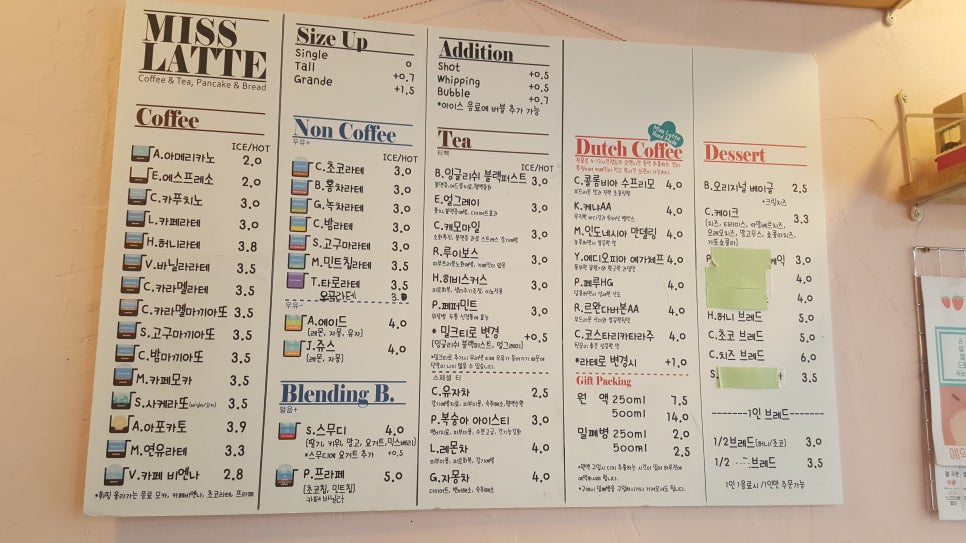 MISS
LATTE
Coffee & Tea, Pancake & Bread
Coffee
ICE/HOT
A.아메리카노 2.0
E.에스프레소 2.0
C.카푸치노 3.0
L.카페라테 3.0
H.허니라테 3.8
V.바닐라라테 3.5
C.카라멜라테 3.5
C.카라멜마끼아또 3.5
S.고구마끼아또 3.5
C.밤마끼아또 3.5
M.카페모카 3.5
S.사케라또 3.5
A.아포카토 3.9
M.연유라테 3.3
V.카페 비엔나 2.8
*휘핑 올라가는 음료 모카, 카페비엔나, 초코라테, 프라페
Size Up
Single 0
Tall +0.7
Grande +1.5
Non Coffee
우유+
ICE/HOT
C.초코라테 3.0
B.홍차라테 3.0
G.녹차라테 3.0
C.밤라테 3.0
S.고구마라테 3.0
M.민트칩라테 3.5
T.타로라테 3.5
오곡라테 3.0
우유-
A.에이드 4.0
(레몬, 자몽, 유자)
J.쥬스 4.0
(레몬, 자몽)
Blending B.
얼음+
S.스무디 4.0
(딸기, 키위, 망고, 요거트, 믹스베리)
*스무디에 요거트 추가 +0.5
P.프라페 5.0
(초코칩, 민트칩)
카페 바닐라
Addition
Shot +0.5
Whipping +0.5
Bubble +0.7
*아이스 음료에 버블 추가 가능
Tea
티백
ICE/HOT
B.잉글리쉬 블랙퍼스트 3.0
E.얼그레이 3.0
C.캐모마일 3.0
R.루이보스 3.0
H.히비스커스 3.0
P.페퍼민트 3.0
* 밀크티로 변경 +0.5
(잉글리쉬 블랙퍼스트, 얼그레이)
스페셜 티
C.유자차 2.5
P.복숭아 아이스티 3.0
L.레몬차 4.0
G.자몽차 4.0
Miss Latte
Hand Made
Dutch Coffee
C.콜롬비아 수프리모 4.0
K.케냐AA 4.0
M.인도네시아 만델링 4.0
Y.에디오피아 예가체프 4.0
P.페루HG 4.0
R.르완다버본AA 4.0
C.코스타리카타라주 4.0
*라테로 변경시 +1.0
Gift Packing
원 액 250ml 7.5
500ml 14.0
밀폐병 250ml 2.0
500ml 2.5
Dessert
B.오리지널 베이글 2.5
+크림치즈
C.케이크 3.3
3.0
4.0
4.0
H.허니 브레드 5.0
C.초코 브레드 5.0
C.치즈 브레드 6.0
3.5
-------1인 브레드-------
1/2브레드(허니/초코) 3.0
1/2 브레드 3.5
1인 1음료시 /1인만 주문가능